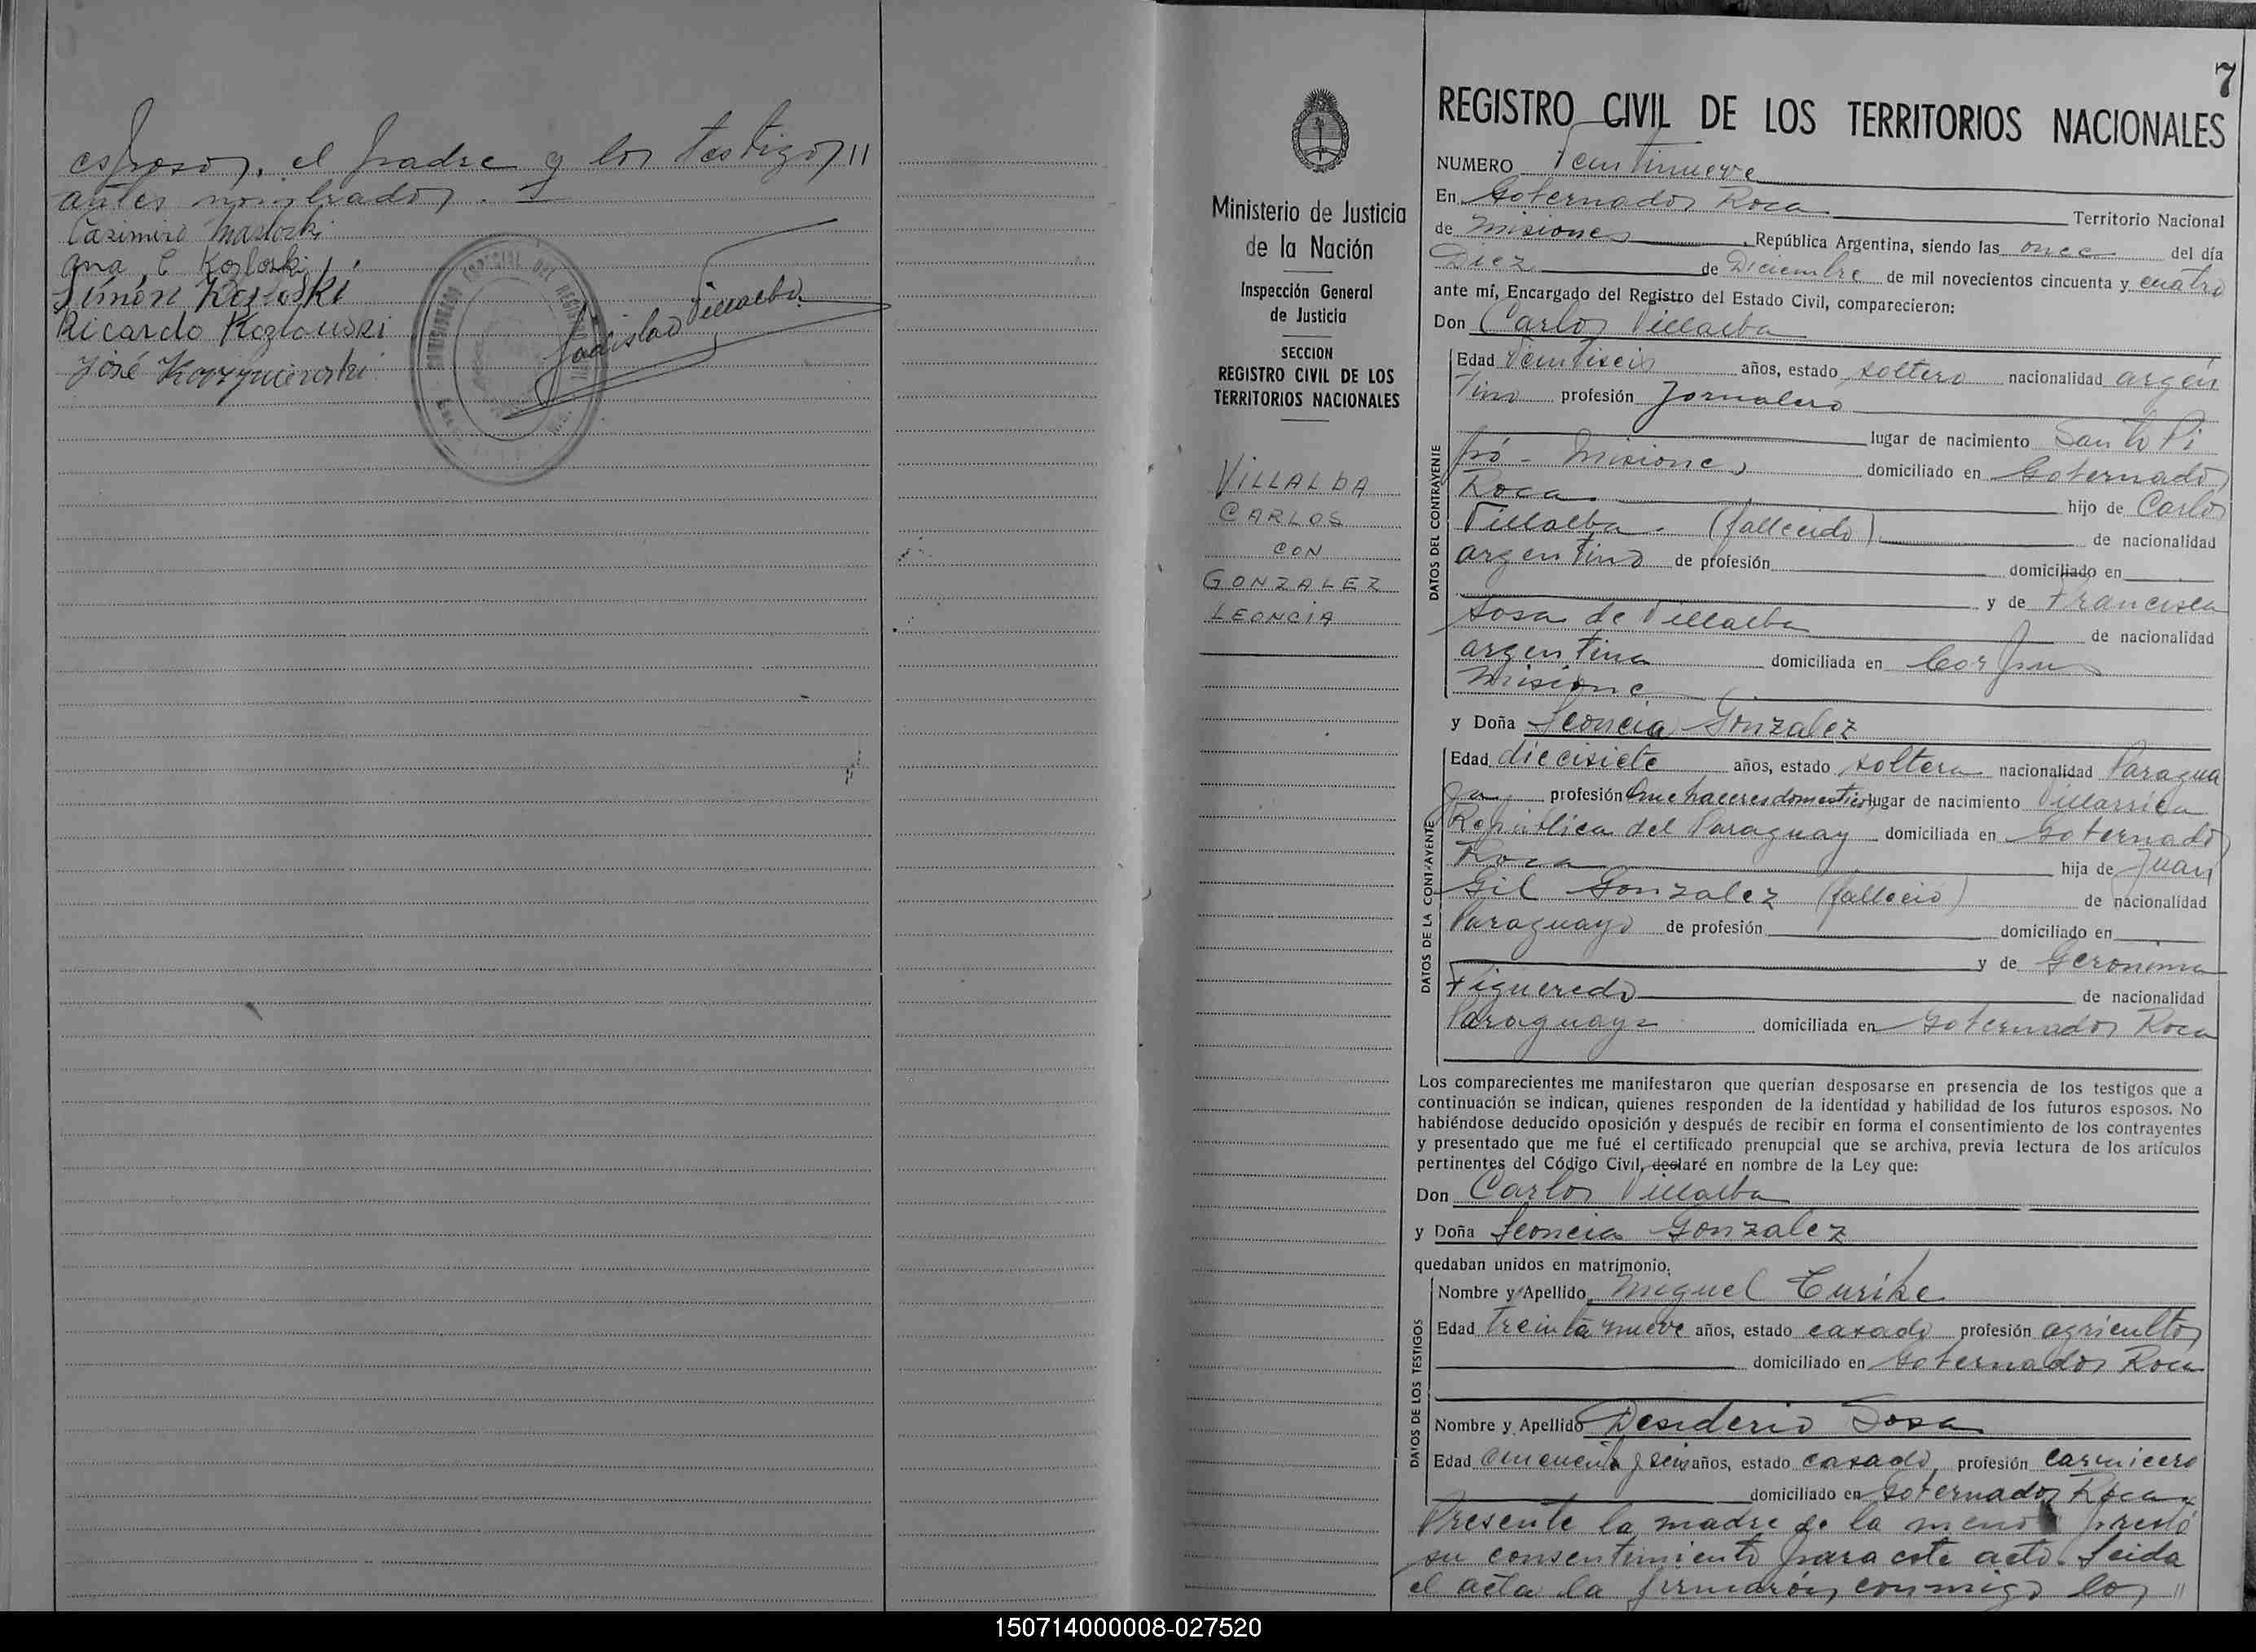 esposos, el padre y los testigos //
antes nombrados.
Casimiro Maslocki
Ana C Kozloski
Simón Kozloski
Ricardo Kozlouski
José
Ladislao Villalba
7
REGISTRO CIVIL DE LOS TERRITORIOS NACIONALES
Ministerio de Justicia
de la Nación
Inspección General
de Justicia
SECCION
REGISTRO CIVIL DE LOS
TERRITORIOS NACIONALES
VILLALBA
CARLOS
CON
GONZALEZ
LEONCIA
NUMERO Veintinueve
En Gobernador Roca Territorio Nacional
de Misiones, República Argentina, siendo las once del día
Diez de Diciembre de mil novecientos cincuenta y cuatro
ante mí, Encargado del Registro del Estado Civil, comparecieron:
Don Carlos Villalba
DATOS DEL CONTRAYENTE
Edad Veintiseis años, estado soltero nacionalidad argen
tino profesión Jornalero
lugar de nacimiento Santo Pi
pó - Misiones domiciliado en Gobernador
Roca hijo de Carlos
Villalba. (fallecido) de nacionalidad
argentino de profesión domiciliado en
y de Francisca
Sosa de Villalba de nacionalidad
argentina domiciliada en Corpus
Misiones
y Doña Leoncia Gonzalez
DATOS DE LA CONTRAYENTE
Edad diecisiete años, estado soltera nacionalidad Paragua
ya profesión Quehaceres domesticos lugar de nacimiento Villarrica
República del Paraguay domiciliada en Gobernador
Roca hija de Juan
Gil Gonzalez (falleció) de nacionalidad
Paraguayo de profesión domiciliado en
y de Geronima
Figueredo de nacionalidad
Paraguaya domiciliada en Gobernador Roca
Los comparecientes me manifestaron que querían desposarse en presencia de los testigos que a
continuación se indican, quienes responden de la identidad y habilidad de los futuros esposos. No
habiéndose deducido oposición y después de recibir en forma el consentimiento de los contrayentes
y presentado que me fué el certificado prenupcial que se archiva, previa lectura de los artículos
pertinentes del Código Civil, declaré en nombre de la Ley que:
Don Carlos Villalba
y Doña Leoncia Gonzalez
quedaban unidos en matrimonio.
DATOS DE LOS TESTIGOS
Nombre y Apellido Miguel Curike
Edad treinta nueve años, estado casado profesión agricultor
domiciliado en Gobernador Roca
Nombre y Apellido Desiderio Sosa
Edad cincuenta y seis años, estado casado, profesión carnicero
domiciliado en Gobernador Roca.
Presente la madre de la menor prestó
su consentimiento para este acto. Leida
el acta la firmaron conmigo los //
150714000008-027520